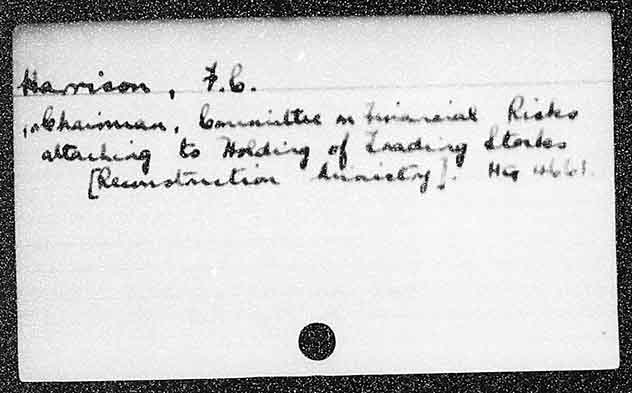 Harrison, F.C.
Chairman, Committee on Financial Risks
attaching to Holding of Trading Stocks
[Reconstruction Ministry]. HQ